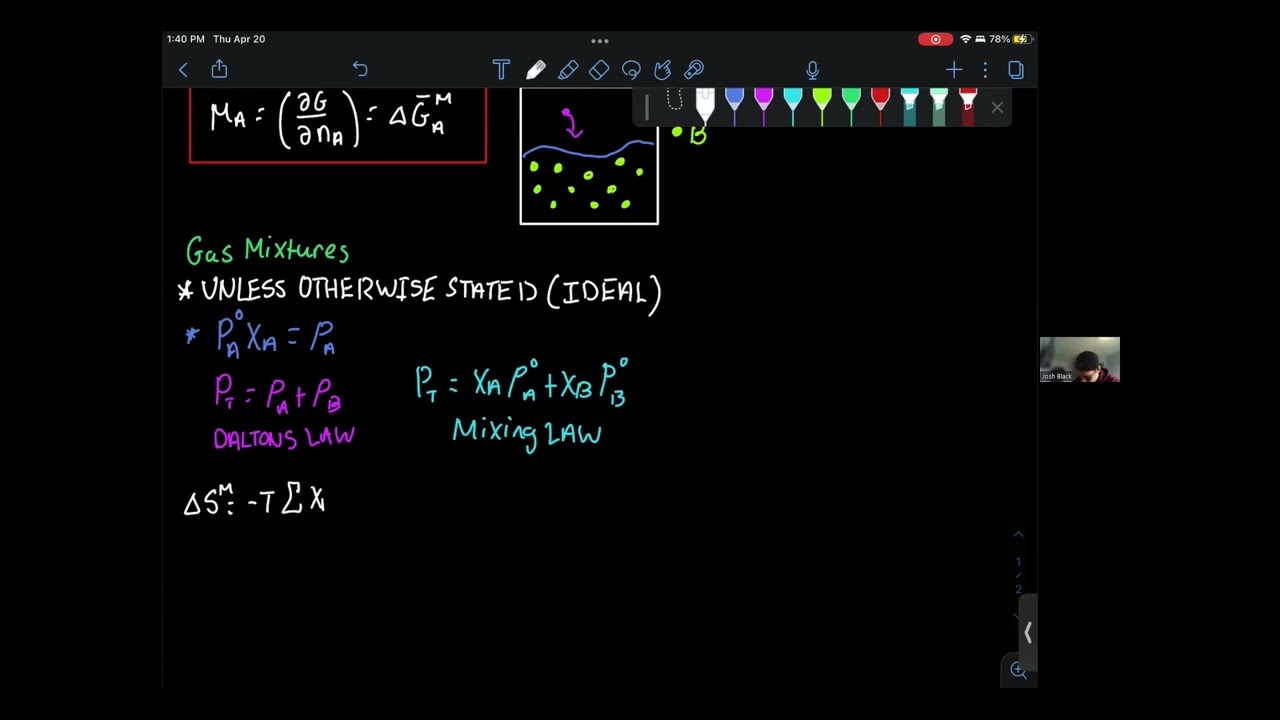 1:40 PM Thu Apr 20
78%
μA = (∂G/∂nA) = ΔḠA^M
B
Gas Mixtures
* UNLESS OTHERWISE STATED (IDEAL)
* P°A XA = PA
PT = PA + PB
DALTONS LAW
PT = XA P°A + XB P°B
Mixing LAW
ΔS^M = -T Σ Xi
1
2
Josh Black